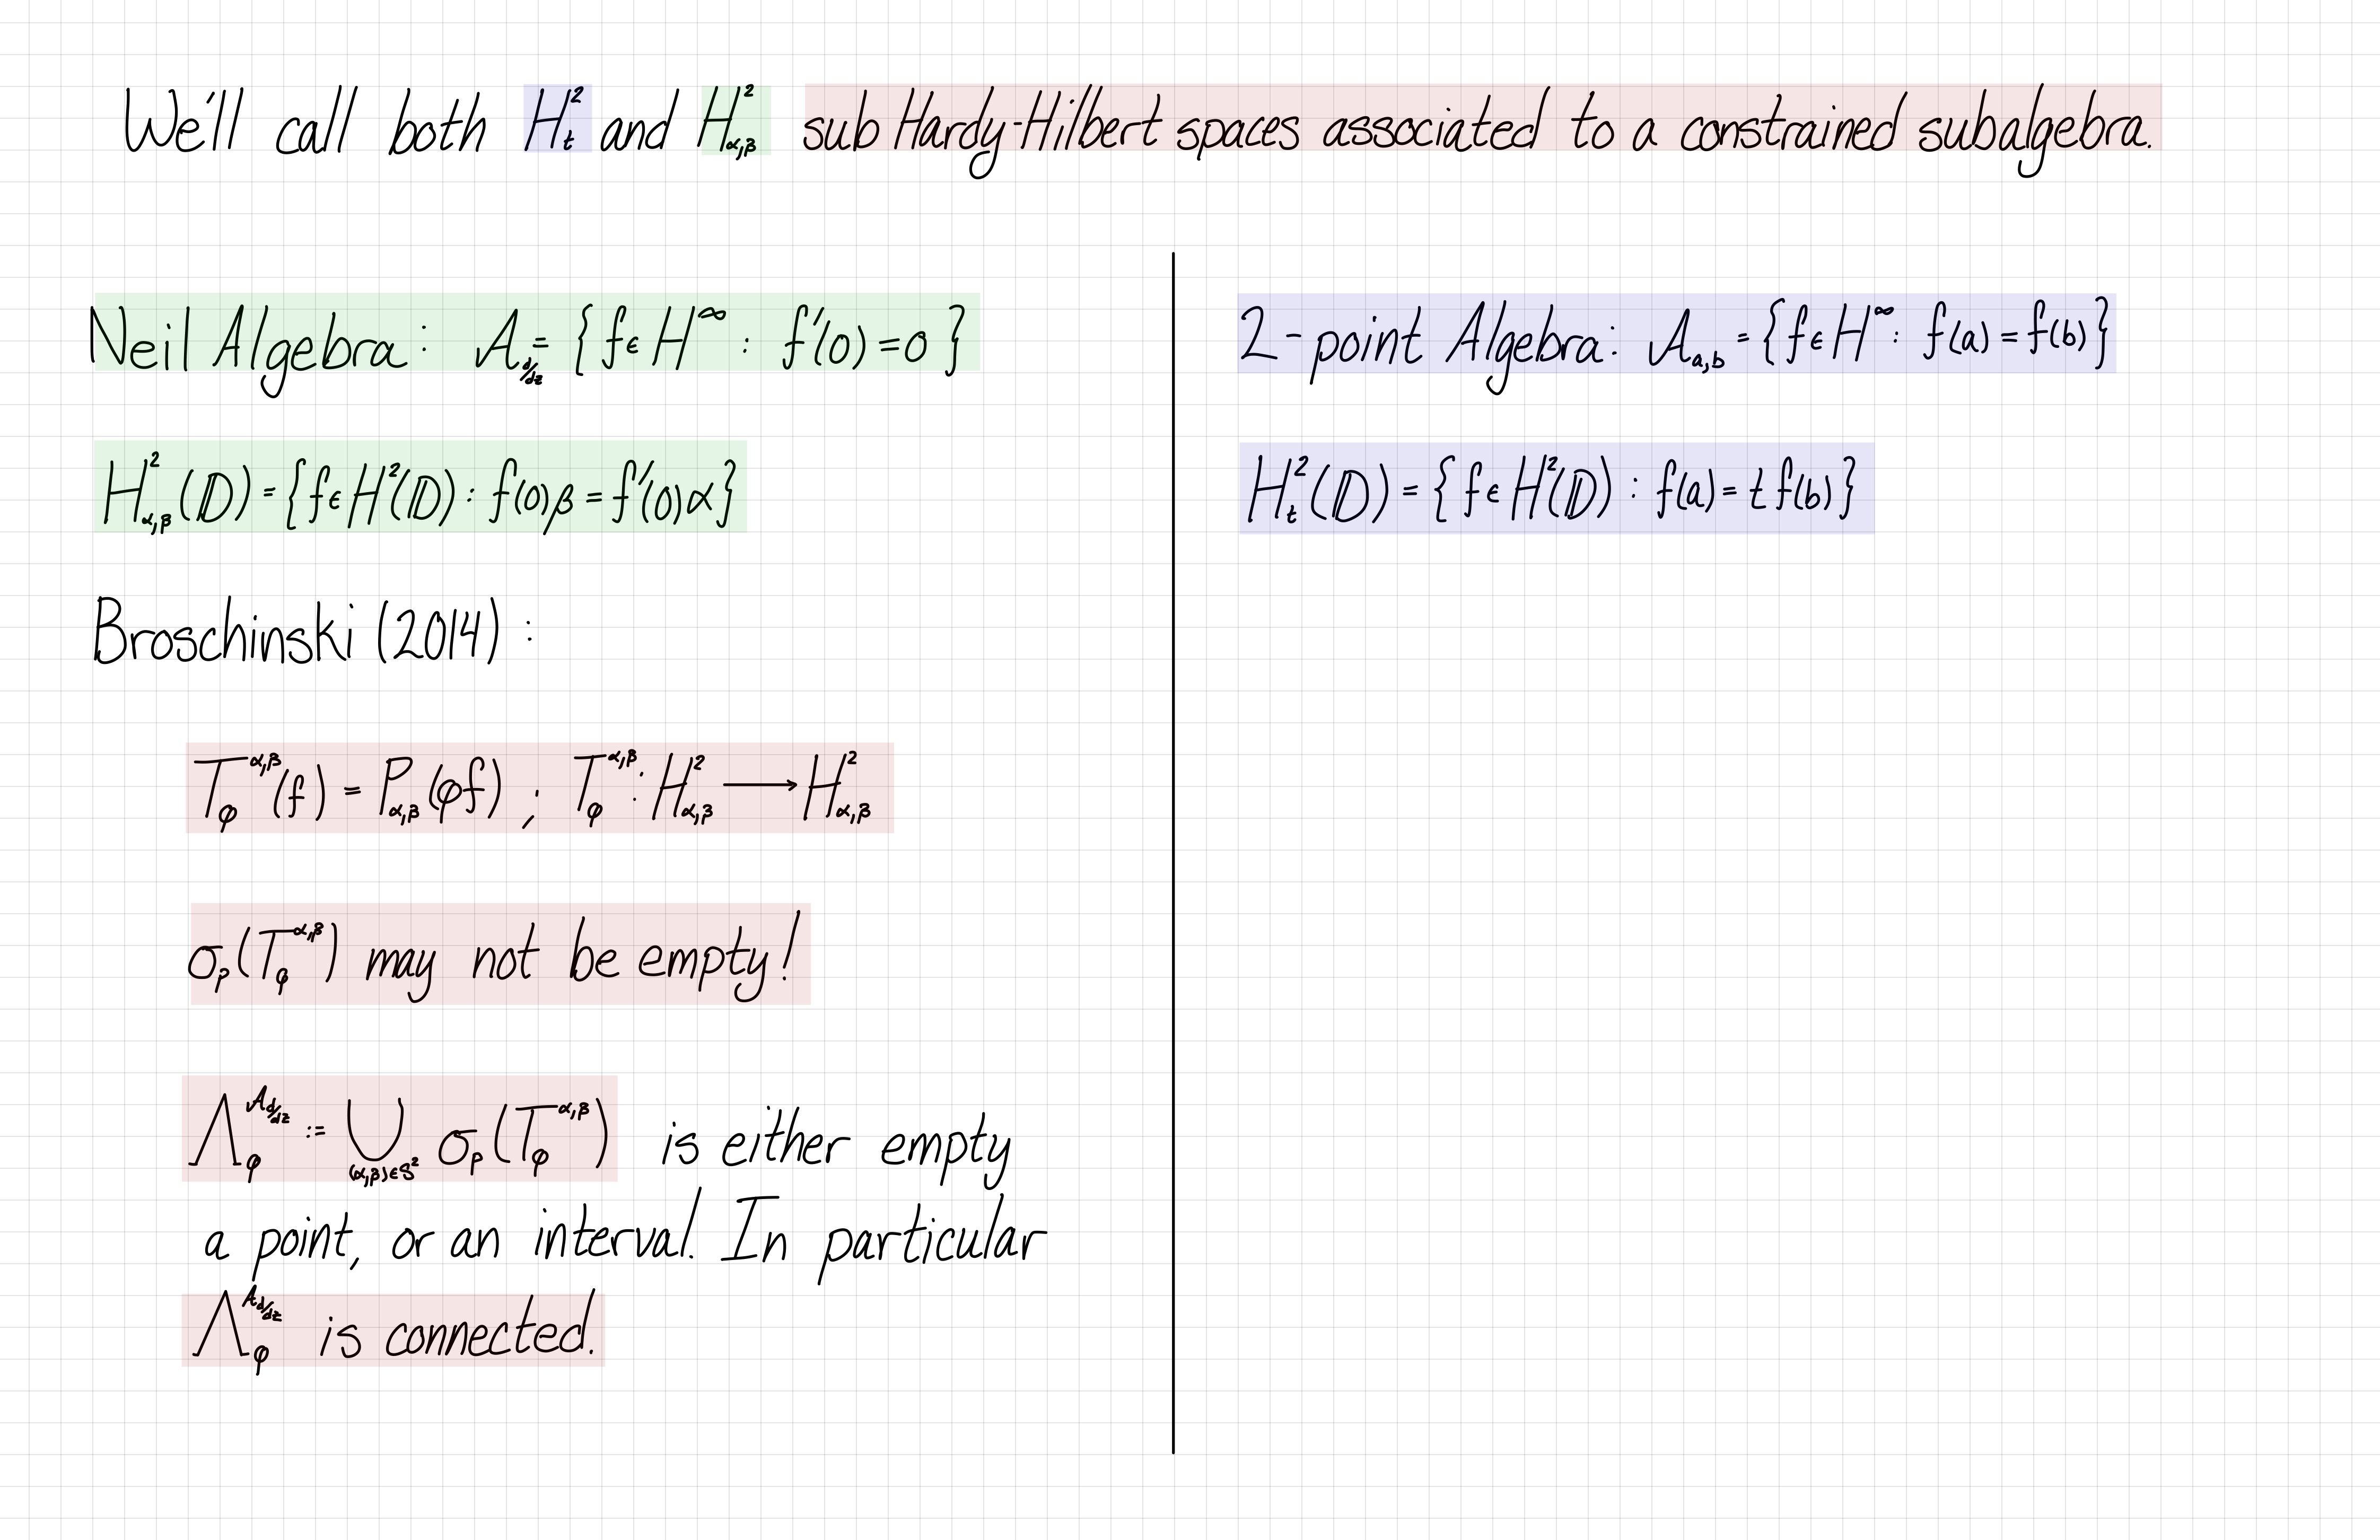 We'll call both H²ₜ and H²_{α,β} sub Hardy-Hilbert spaces associated to a constrained subalgebra.
Neil Algebra: 𝒜_{d/dz} = {f ∈ H^∞ : f'(0) = 0}
H²_{α,β}(𝔻) = {f ∈ H²(𝔻) : f(0)β = f'(0)α}
Broschinski (2014) :
T_φ^{α,β}(f) = P_{α,β}(φf) ; T_φ^{α,β} : H²_{α,β} ⟶ H²_{α,β}
σ_p(T_φ^{α,β}) may not be empty!
Λ_φ^{𝒜_{d/dz}} := ⋃_{(α,β)∈𝕊²} σ_p(T_φ^{α,β}) is either empty
a point, or an interval. In particular
Λ_φ^{𝒜_{d/dz}} is connected.
2-point Algebra: 𝒜_{a,b} = {f ∈ H^∞ : f(a) = f(b)}
H²_t(𝔻) = {f ∈ H²(𝔻) : f(a) = t f(b)}